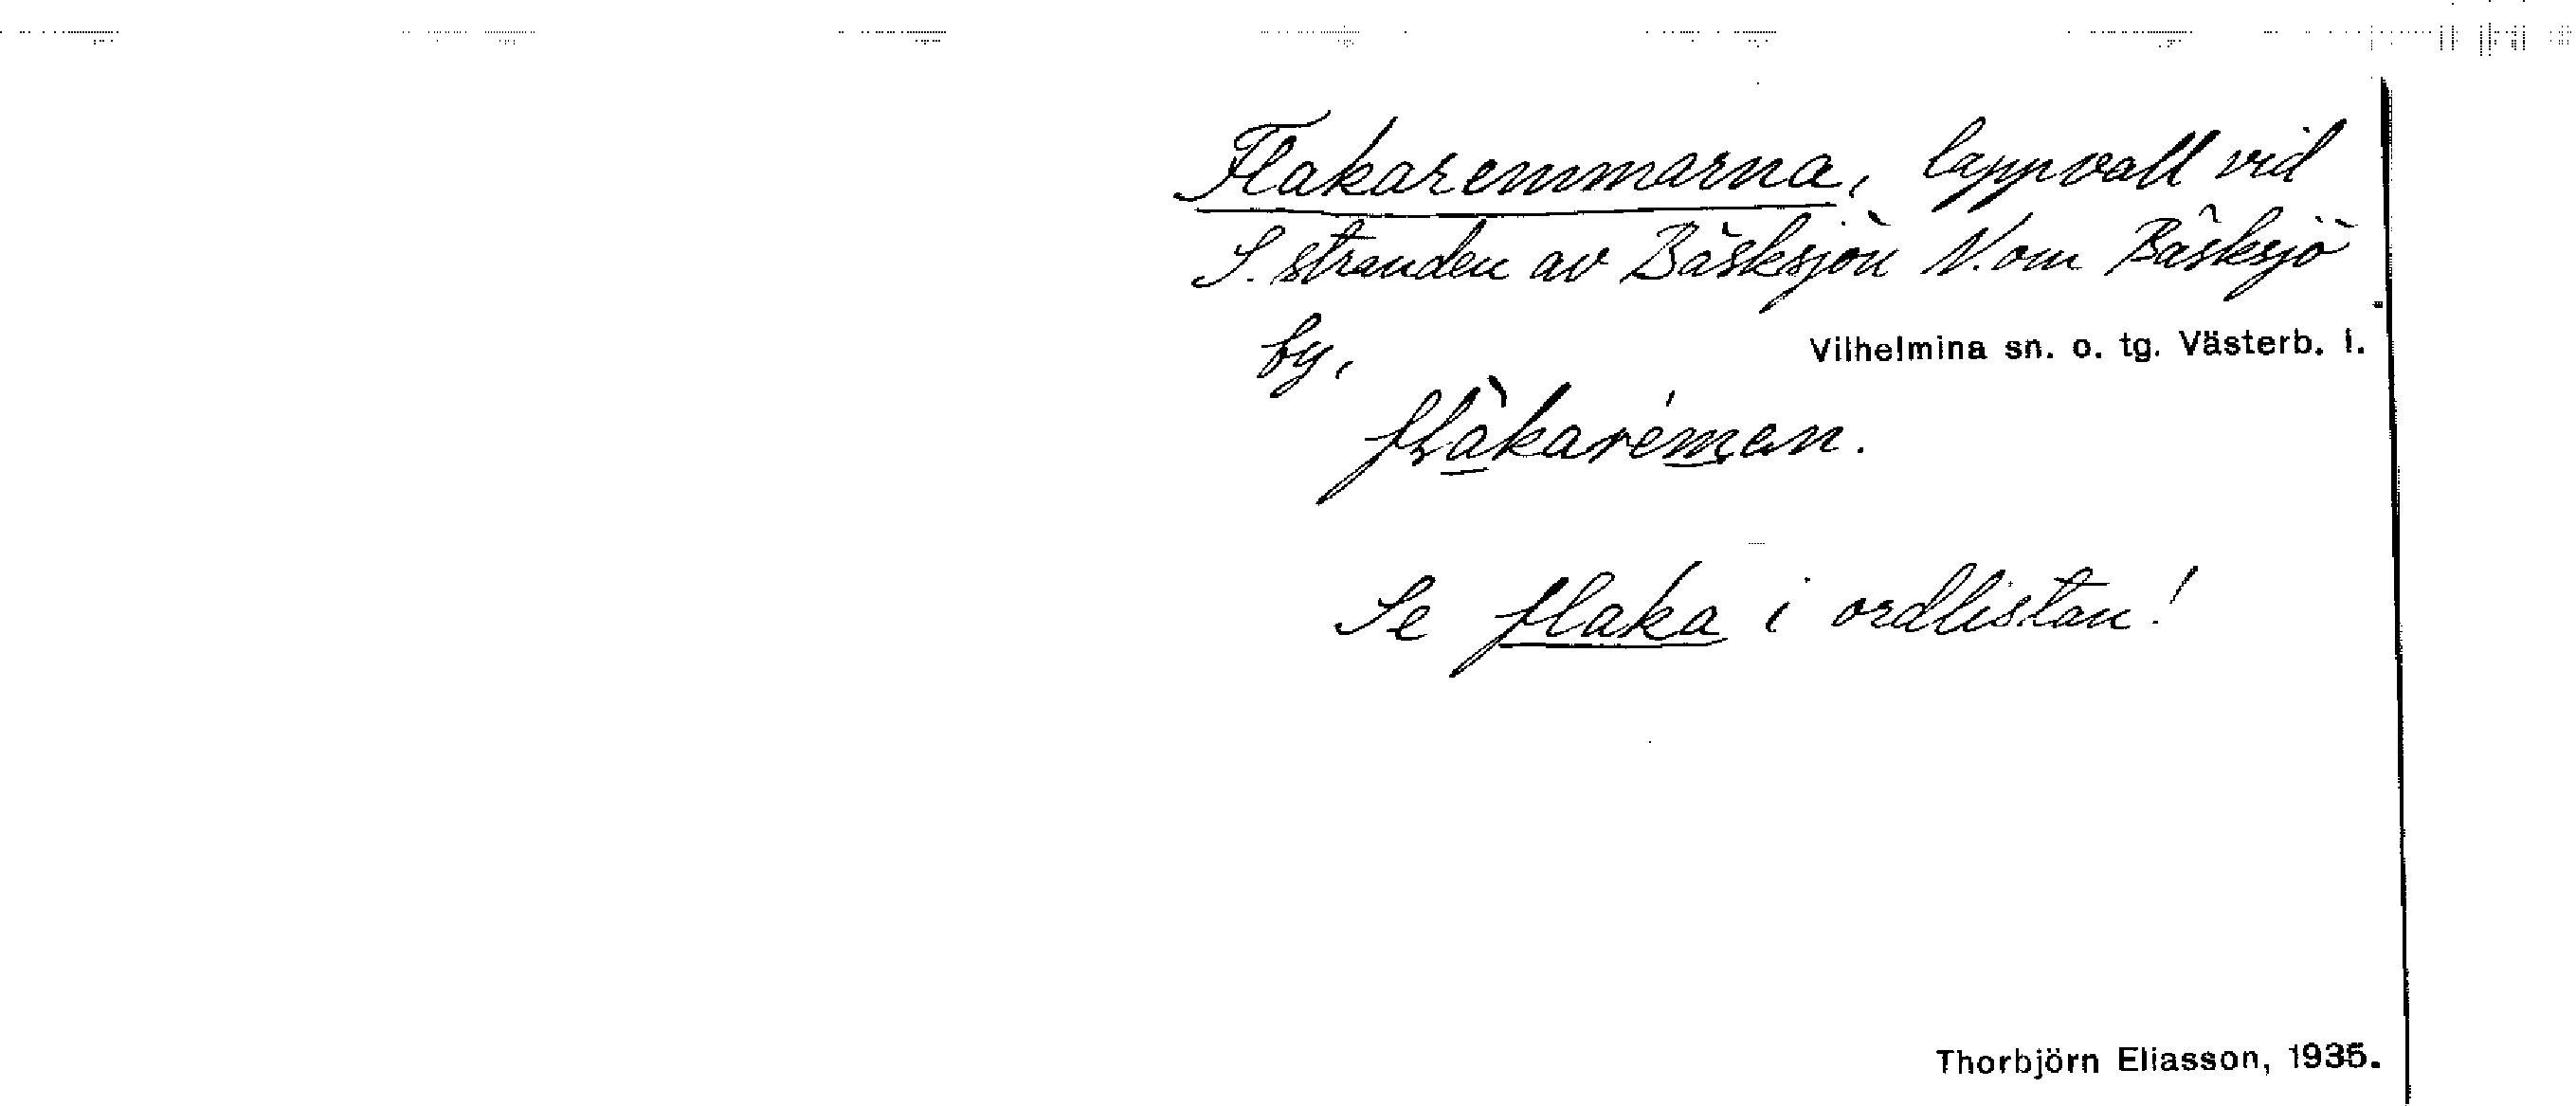 Flakaremmarna, lappvall vid
S. stranden av Bäsksjön N. om Bäsksjö
by,
Vilhelmina sn. o. tg. Västerb. l.
flàkaréman.
Se flaka i ordlistan!
Thorbjörn Eliasson, 1935.